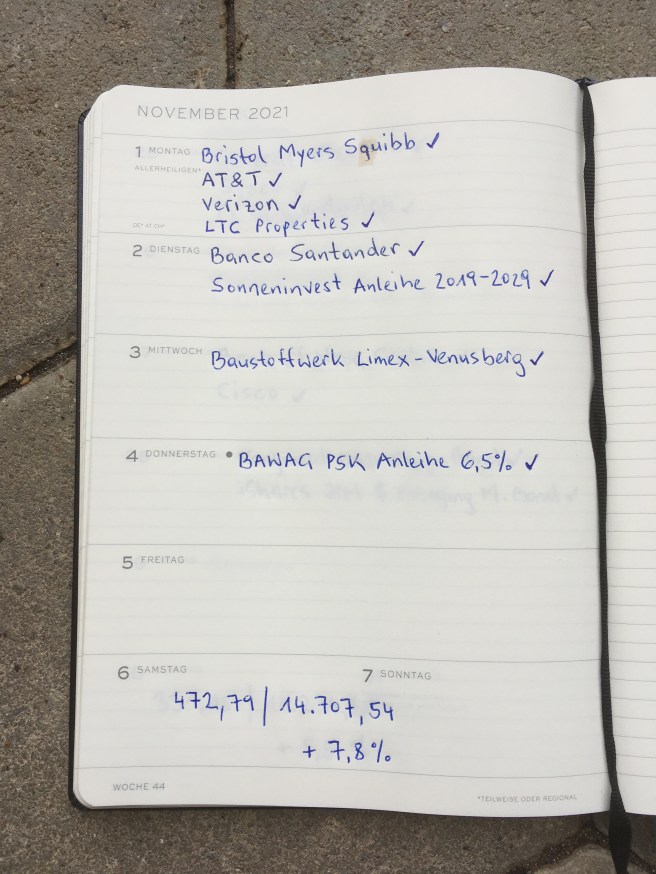 NOVEMBER 2021
1 MONTAG Bristol Myers Squibb ✓
ALLERHEILIGEN*
AT&T ✓
Verizon ✓
LTC Properties ✓
2 DIENSTAG Banco Santander ✓
Sonneninvest Anleihe 2019-2029 ✓
3 MITTWOCH Baustoffwerk Limex-Venusberg ✓
Cisco ✓
4 DONNERSTAG • BAWAG PSK Anleihe 6,5% ✓
5 FREITAG
6 SAMSTAG 7 SONNTAG
472,79 | 14.707,54
+ 7,8%
WOCHE 44 *TEILWEISE ODER REGIONAL